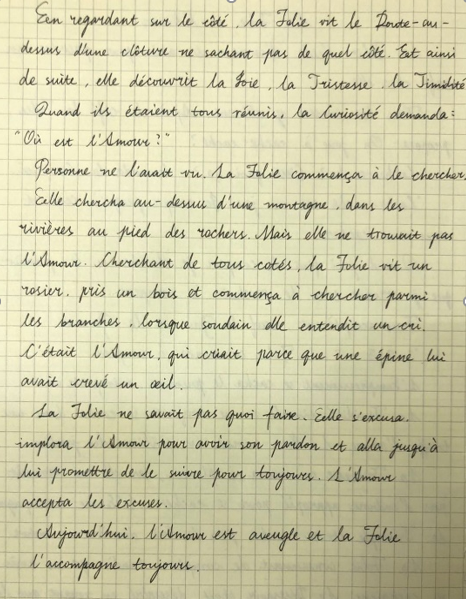 Een regardant sur le côté, la Folie vit le Doute au-
dessus d'une clôture ne sachant pas de quel côté. Est ainsi
de suite, elle découvrit la Joie, la Tristesse, la Timidité
Quand ils étaient tous réunis, la Curiosité demanda :
"Où est l'Amour ?"
Personne ne l'avait vu. La Folie commença à le chercher.
Eelle chercha au-dessus d'une montagne, dans les
rivières au pied des rochers. Mais elle ne trouvait pas
l'Amour. Cherchant de tous cotés, la Folie vit un
rosier, pris un bois et commença à chercher parmi
les branches, lorsque soudain elle entendit un cri.
C'était l'Amour, qui criait parce que une épine lui
avait crevé un œil.
La Folie ne savait pas quoi faire. Eelle s'excusa,
implora l'Amour pour avoir son pardon et alla jusqu'à
lui promettre de le suivre pour toujours. L'Amour
accepta les excuses.
Aujourd'hui, l'Amour est aveugle et la Folie
l'accompagne toujours.